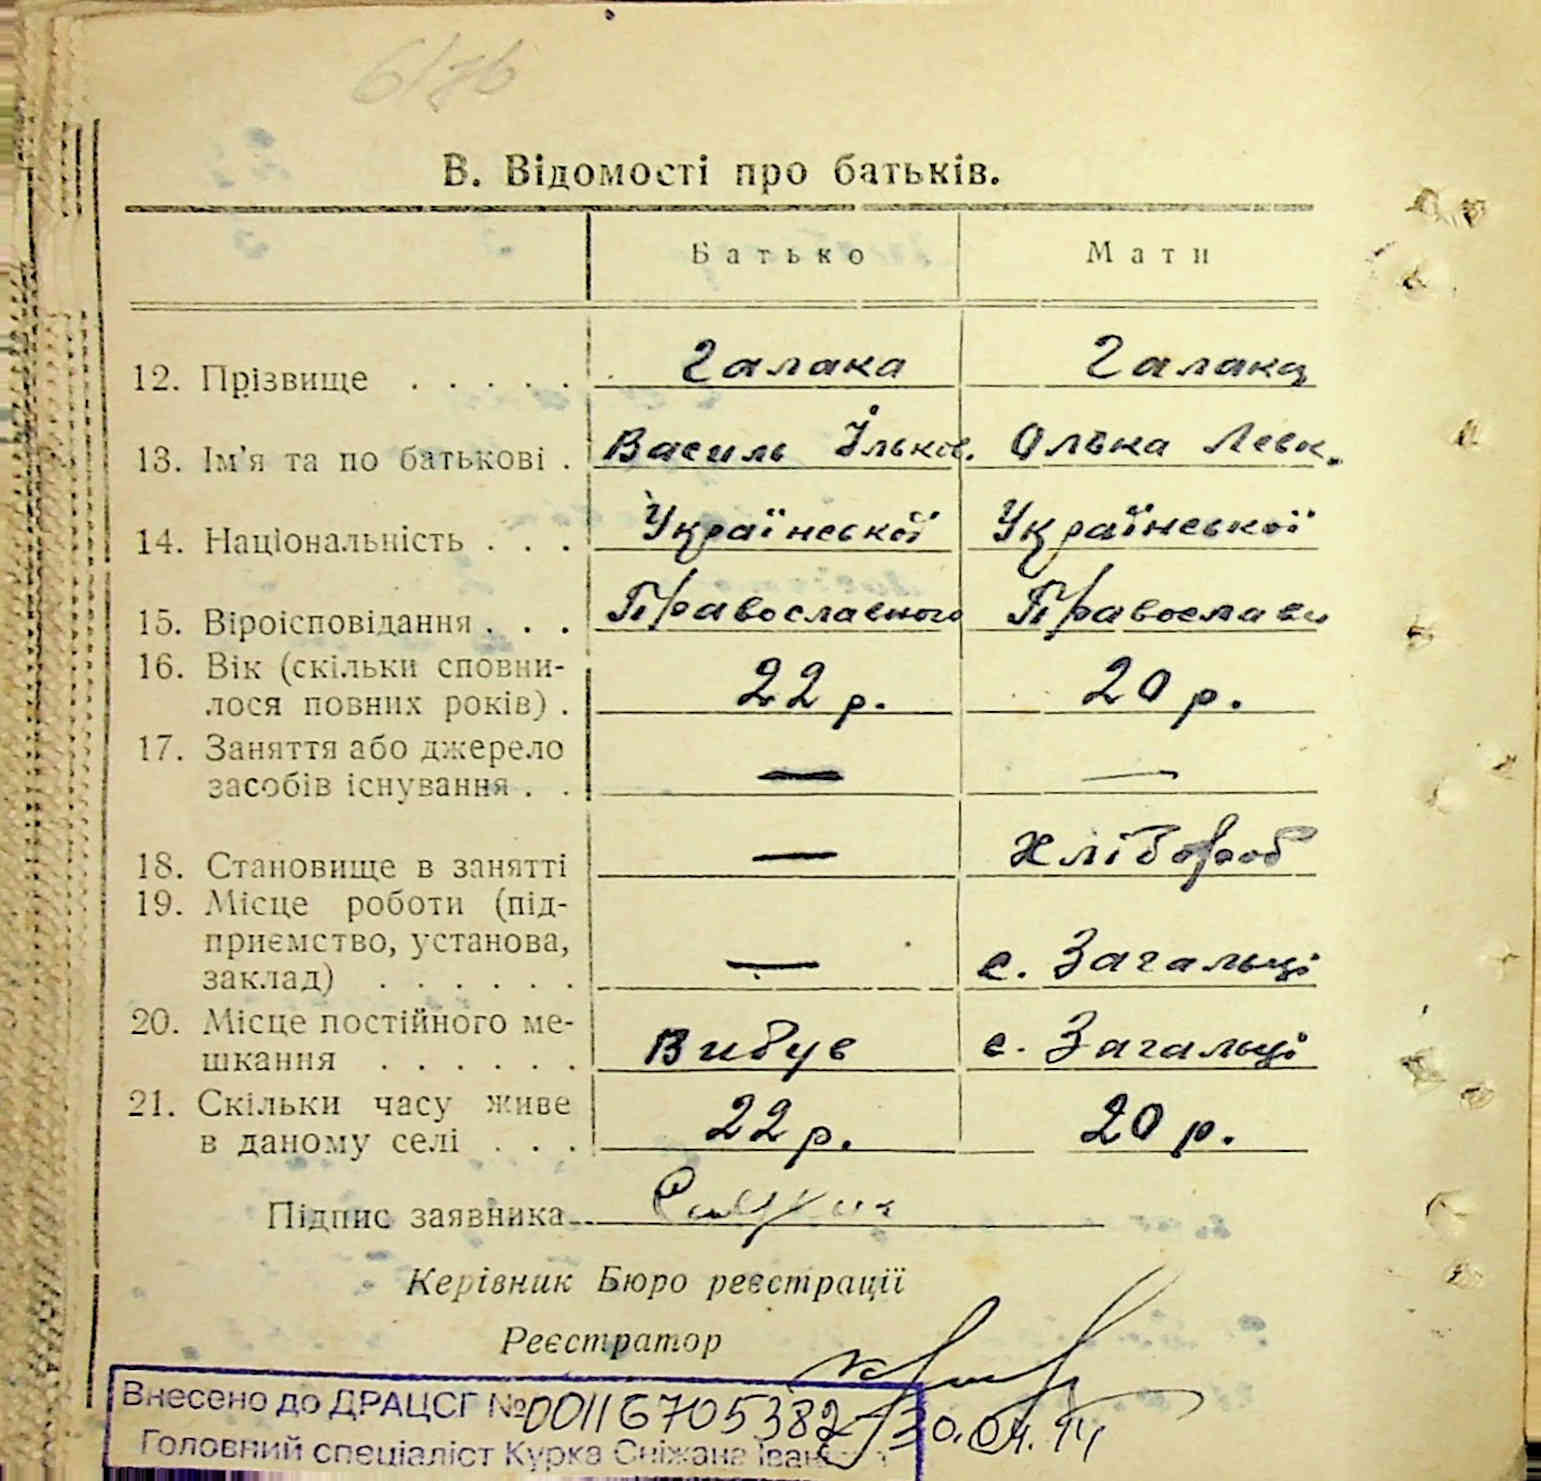 6/76
В. Відомості про батьків.
Батько Мати
12. Прізвище . . . . . Галака Галака
13. Ім'я та по батькові . Василь Ільков. Олька Левк.
14. Національність . . . Української Української
15. Віроісповідання . . . Православного Православн
16. Вік (скільки сповни-
лося повних років) . 22 р. 20 р.
17. Заняття або джерело
засобів існування . . — —
18. Становище в занятті — Хлібороб
19. Місце роботи (під-
приємство, установа,
заклад) . . . . . . — с. Загальці
20. Місце постійного ме-
шкання . . . . . . Вибув с. Загальці
21. Скільки часу живе
в даному селі . . . 22 р. 20 р.
Підпис заявника
Керівник Бюро реєстрації
Реєстратор
Внесено до ДРАЦСГ №00116705382 30.04.14
Головний спеціаліст Курка Сніжана Іван